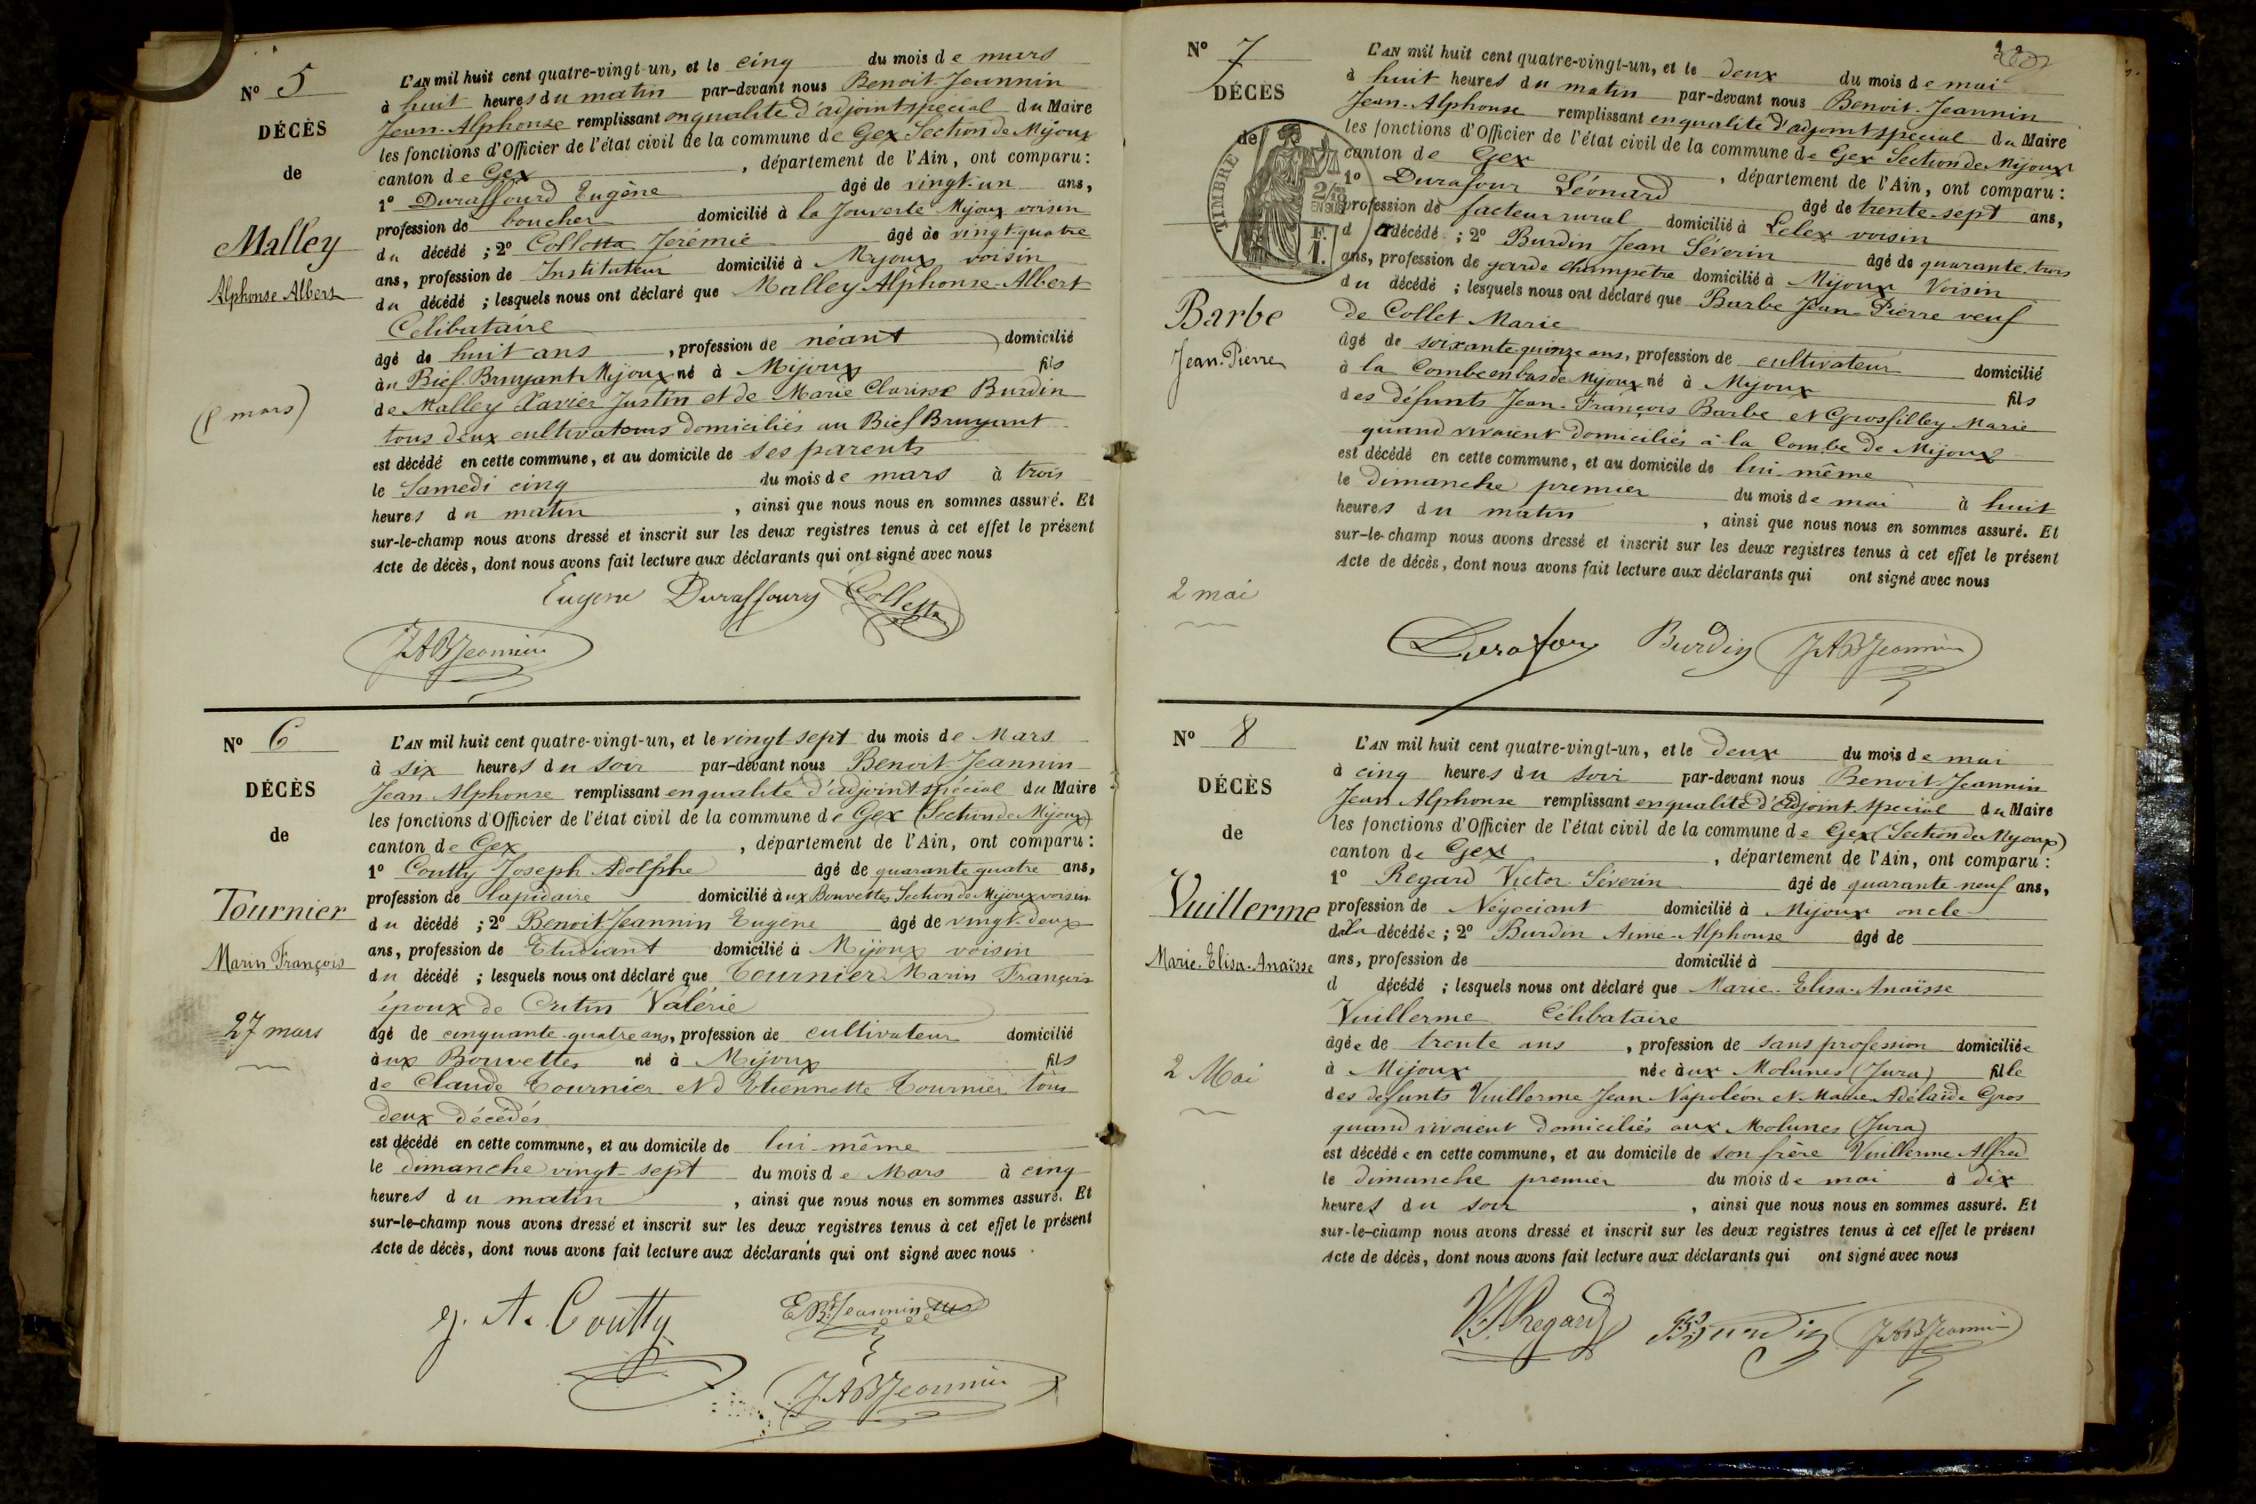 N° 5
DÉCÈS
de
Malley
Alphonse Albert
(5 mars)
L'AN mil huit cent quatre-vingt-un, et le cinq du mois de mars
à huit heures du matin par-devant nous Benoit-Jeannin
Jean-Alphonse remplissant en qualité d'adjoint spécial du Maire
les fonctions d'Officier de l'état civil de la commune de Gex Section de Mijoux
canton de Gex, département de l'Ain, ont comparu :
1° Duraffourd Eugène âgé de vingt-un ans,
profession de boucher domicilié à la Jouverte Mijoux voisin
du décédé ; 2° Colletta Jérémie âgé de vingt-quatre
ans, profession de Instituteur domicilié à Mijoux voisin
du décédé ; lesquels nous ont déclaré que Malley Alphonse-Albert
Célibataire
âgé de huit ans, profession de néant domicilié
au Bief-Bruyant Mijoux né à Mijoux fils
de Malley Xavier Justin et de Marie Clarisse Burdin
tous deux cultivateurs domiciliés au Bief Bruyant
est décédé en cette commune, et au domicile de ses parents
le Samedi cinq du mois de mars à trois
heures du matin, ainsi que nous nous en sommes assuré. Et
sur-le-champ nous avons dressé et inscrit sur les deux registres tenus à cet effet le présent
Acte de décès, dont nous avons fait lecture aux déclarants qui ont signé avec nous
Eugene Duraffourg Colletta
JABJeannin
N° 6
DÉCÈS
de
Tournier
Marin François
27 mars
L'AN mil huit cent quatre-vingt-un, et le vingt sept du mois de Mars
à six heures du soir par-devant nous Benoit-Jeannin
Jean-Alphonse remplissant en qualité d'adjoint spécial du Maire
les fonctions d'Officier de l'état civil de la commune de Gex (Section de Mijoux)
canton de Gex, département de l'Ain, ont comparu :
1° Coutty Joseph Adolphe âgé de quarante quatre ans,
profession de lapidaire domicilié aux Bouvettes Section de Mijoux voisin
du décédé ; 2° Benoit-Jeannin Eugène âgé de vingt-deux
ans, profession de Etudiant domicilié à Mijoux voisin
du décédé ; lesquels nous ont déclaré que Tournier Marin François
époux de Crétin Valérie
âgé de cinquante-quatre ans, profession de cultivateur domicilié
aux Bouvettes né à Mijoux fils
de Claude Tournier et d'Etiennette Tournier tous
deux décédés
est décédé en cette commune, et au domicile de lui-même
le dimanche vingt-sept du mois de Mars à cinq
heures du matin, ainsi que nous nous en sommes assuré. Et
sur-le-champ nous avons dressé et inscrit sur les deux registres tenus à cet effet le présent
Acte de décès, dont nous avons fait lecture aux déclarants qui ont signé avec nous
J. A. Coutty EBtJeannin
JABJeannin
N° 7
DÉCÈS
de
TIMBRE
Barbe
Jean-Pierre
2 mai
L'AN mil huit cent quatre-vingt-un, et le deux du mois de mai
à huit heures du matin par-devant nous Benoit-Jeannin
Jean-Alphonse remplissant en qualité d'adjoint spécial du Maire
les fonctions d'Officier de l'état civil de la commune de Gex Section de Mijoux
canton de Gex, département de l'Ain, ont comparu :
1° Durafour Léonard âgé de trente-sept ans,
profession de facteur rural domicilié à Lelex voisin
du décédé ; 2° Burdin Jean Séverin âgé de quarante-trois
ans, profession de garde champêtre domicilié à Mijoux Voisin
du décédé ; lesquels nous ont déclaré que Barbe Jean-Pierre veuf
de Collet Marie
âgé de soixante-quinze ans, profession de cultivateur domicilié
à la Combe en bas de Mijoux né à Mijoux fils
des défunts Jean-François Barbe et Grosfilley Marie
quand vivaient domiciliés à la Combe de Mijoux
est décédé en cette commune, et au domicile de lui-même
le dimanche premier du mois de mai à huit
heures du matin, ainsi que nous nous en sommes assuré. Et
sur-le-champ nous avons dressé et inscrit sur les deux registres tenus à cet effet le présent
Acte de décès, dont nous avons fait lecture aux déclarants qui ont signé avec nous
Durafour Burdin JABJeannin
N° 8
DÉCÈS
de
Vuillerme
Marie-Elisa-Anaïsse
2 Mai
L'AN mil huit cent quatre-vingt-un, et le deux du mois de mai
à cinq heures du soir par-devant nous Benoit-Jeannin
Jean Alphonse remplissant en qualité d'adjoint spécial du Maire
les fonctions d'Officier de l'état civil de la commune de Gex (Section de Mijoux)
canton de Gex, département de l'Ain, ont comparu :
1° Regard Victor Séverin âgé de quarante-neuf ans,
profession de Négociant domicilié à Mijoux oncle
de la décédée ; 2° Burdin Aimé-Alphonse âgé de
ans, profession de domicilié à
d décédé ; lesquels nous ont déclaré que Marie-Elisa-Anaïsse
Vuillerme Célibataire
âgée de trente ans, profession de sans profession domiciliée
à Mijoux née aux Molunes (Jura) fille
des défunts Vuillerme Jean Napoléon et Marie Adélaïde Gros
quand vivaient domiciliés aux Molunes (Jura)
est décédée en cette commune, et au domicile de son frère Vuillerme Alfred
le dimanche premier du mois de mai à dix
heures du soir, ainsi que nous nous en sommes assuré. Et
sur-le-champ nous avons dressé et inscrit sur les deux registres tenus à cet effet le présent
Acte de décès, dont nous avons fait lecture aux déclarants qui ont signé avec nous
V. S. Regard Burdin JABJeannin